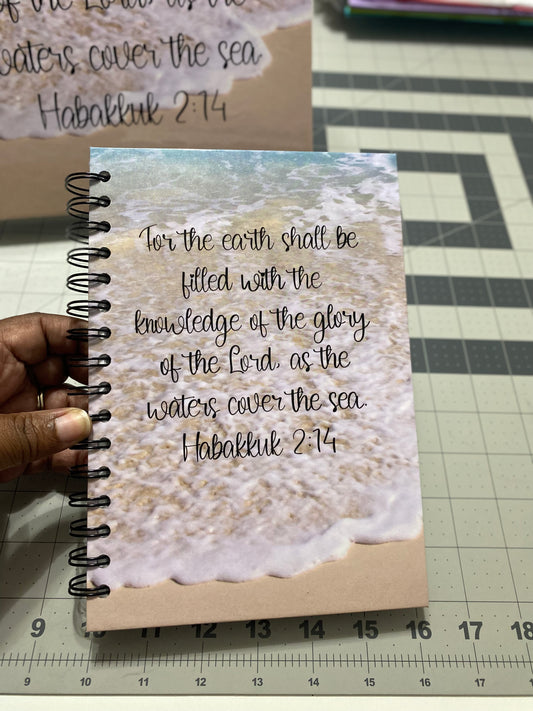 of the Lord, as the
waters cover the sea.
Habakkuk 2:14
For the earth shall be
filled with the
knowledge of the glory
of the Lord, as the
waters cover the sea.
Habakkuk 2:14
9 10 11 12 13 14 15 16 17 18
9 10 11 12 13 14 15 16 17 18